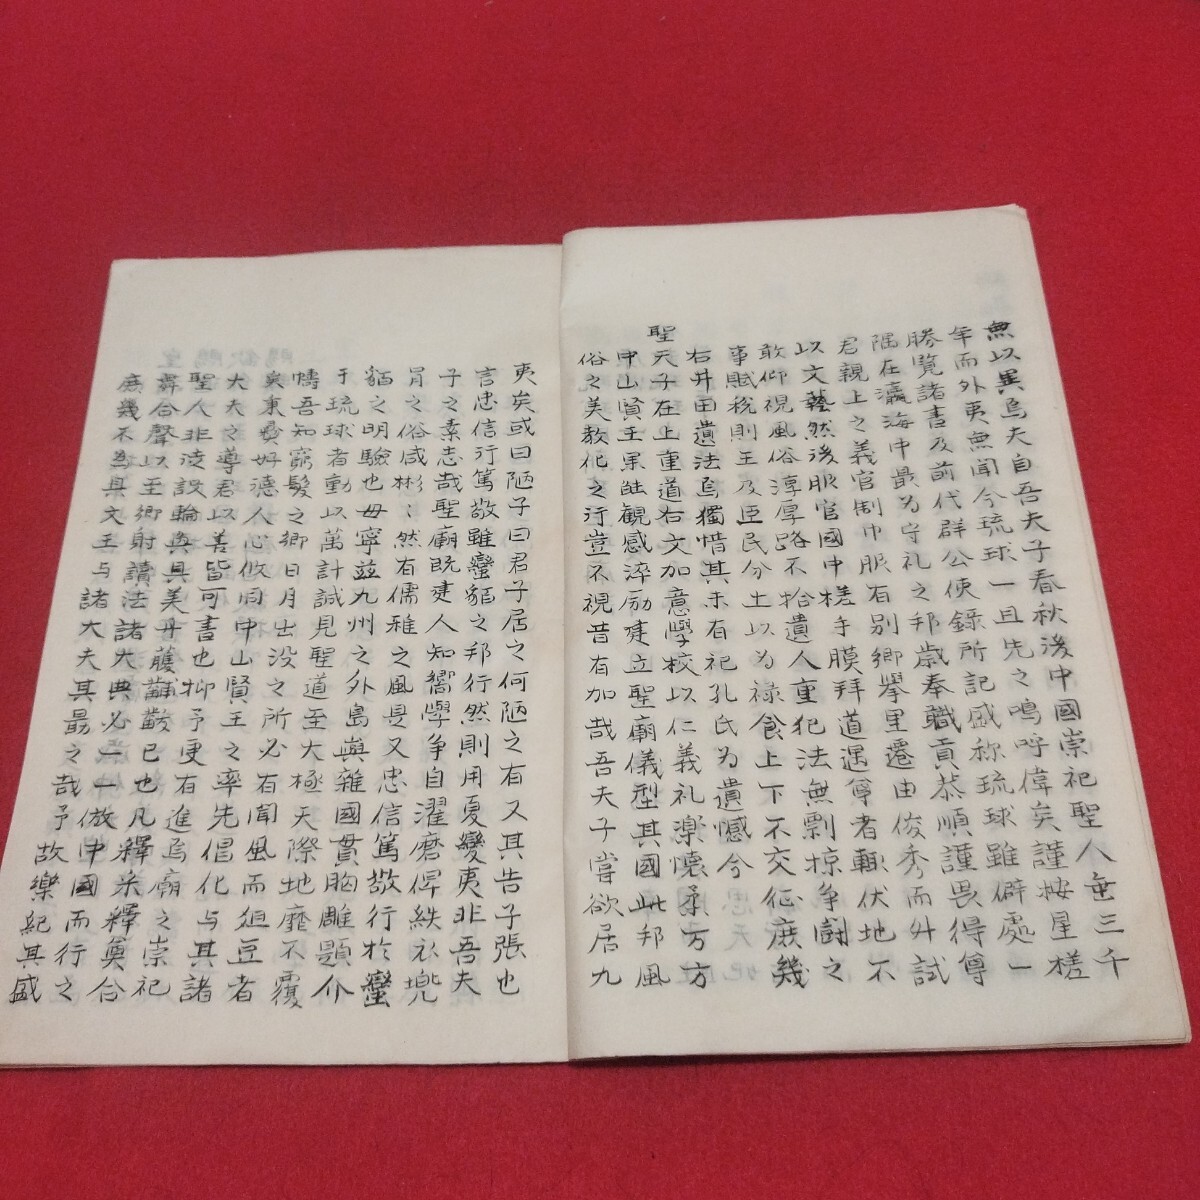 無以異烏夫自吾夫子春秋後中國崇祀聖人垂三千
年而外夷無聞今琉球一旦先之鳴呼偉矣謹按星槎
勝覧諸書及前代群公使錄所記盛称琉球雖僻處一
隅在瀛海中最為守礼之邦歳奉職貢恭順謹畏得傳
君親上之義官制巾服有別郷擧里遷由俊秀而升試
以文藝然後服官國中槎手膜拜道遇尊者輙伏地不
敢仰視風俗淳厚路不拾遺人重犯法無剽掠争鬪之
事賦税則王及臣民分土以为禄食上下不交征庶幾
右井田遺法烏獨惜其未有祀孔氏为遺憾今
聖天子在上重道右文加意學校以仁義礼楽懐柔方方
中山賢王果能観感淬励建立聖廟儀型其國此邦風
俗之美教化之行豈不視昔有加哉吾夫子嘗欲居九
夷矣或曰陋子曰君子居之何陋之有又其告子張也
言忠信行篤敬雖蠻貊之邦行然則用夏變夷非吾夫
子之素志哉聖廟既建人知嚮學争自濯磨俾紩衣兜
冐之俗咸彬〻然有儒雅之風是又忠信篤敬行於蠻
貊之明驗也毋寧並九州之外島與雜國貫胸雕題介
于琉球者動以萬計誠見聖道至大極天際地靡不覆
幬吾知窮髮之郷日月出没之所必有聞風而俎豆者
矣秉彜好德人心攸同中山賢王之率先倡化与其諸
大夫之導君以善皆可書也抑予更有進烏廟之崇祀
聖人非淩設輪奐具美丹雘黼黻已也凡釋采釋奠合
舞合聲以至郷射讀法諸大典必一一倣中國而行之
庶幾不为具文王与諸大夫其勗之哉予故樂紀其盛